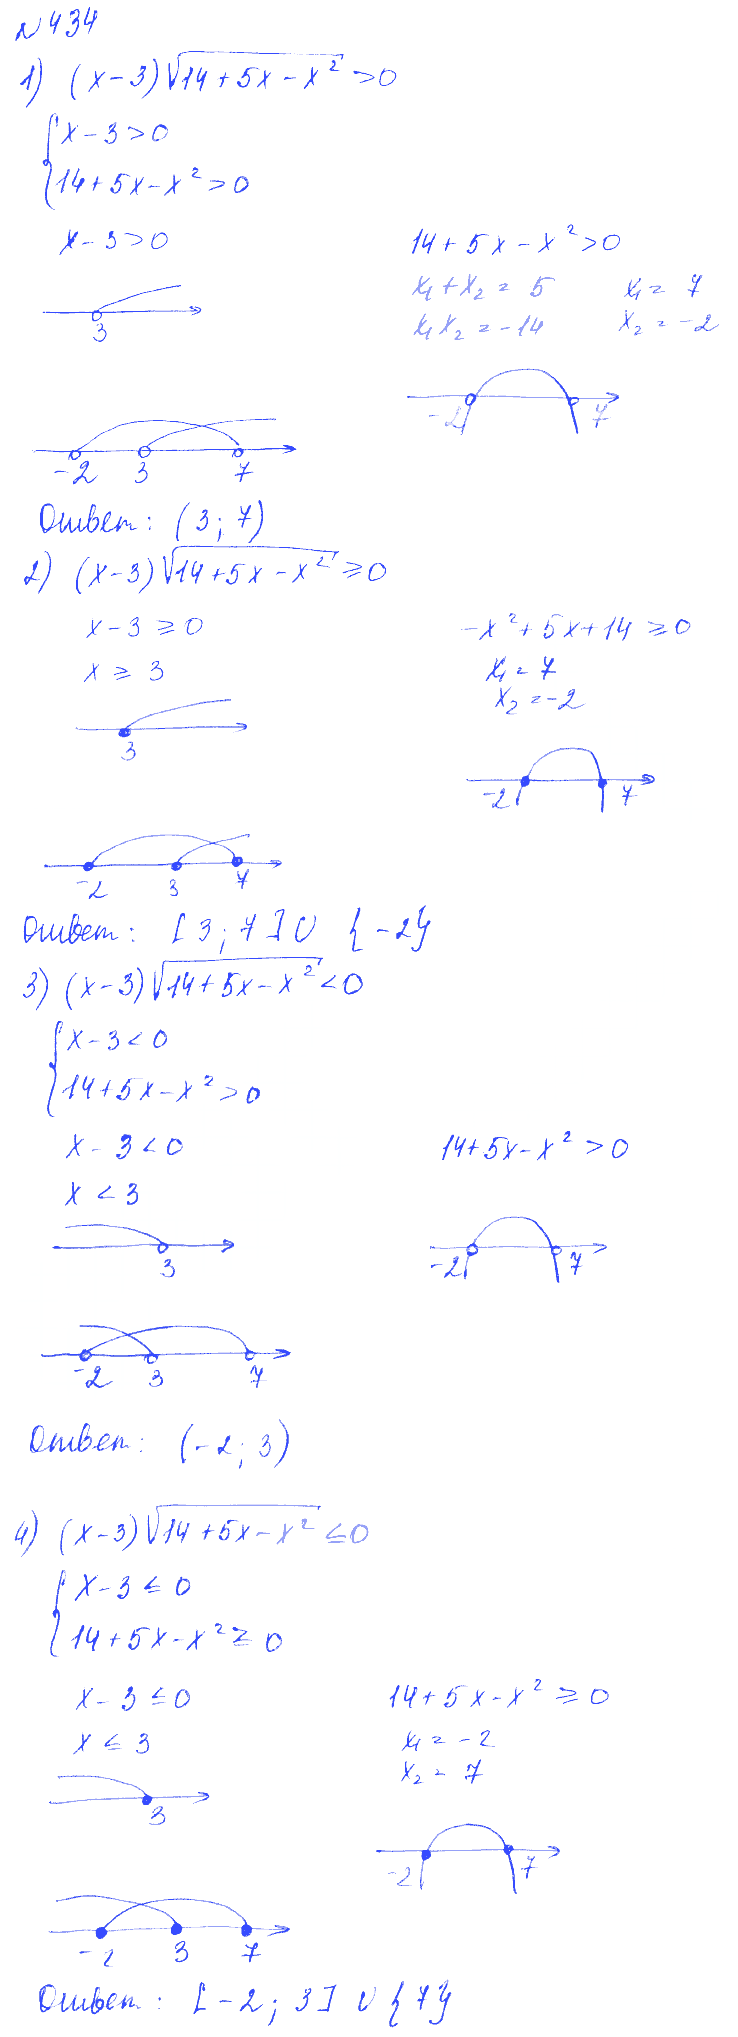 №434
1) (x-3)√(14+5x-x²) >0
{x-3>0
{14+5x-x²>0
x-3>0 14+5x-x²>0
x₁+x₂=5 x₁=7
x₁x₂=-14 x₂=-2
3
-2 7
-2 3 7
Ответ: (3; 7)
2) (x-3)√(14+5x-x²) ≥0
x-3≥0 -x²+5x+14≥0
x≥3 x₁=7
x₂=-2
3
-2 7
-2 3 7
Ответ: [3; 7]∪ {-2}
3) (x-3)√(14+5x-x²) <0
{x-3<0
{14+5x-x²>0
x-3<0 14+5x-x²>0
x<3
3
-2 7
-2 3 7
Ответ: (-2; 3)
4) (x-3)√(14+5x-x²) ≤0
{x-3≤0
{14+5x-x²≥0
x-3≤0 14+5x-x²≥0
x≤3 x₁=-2
x₂=7
3
-2 7
-2 3 7
Ответ: [-2; 3]∪{7}